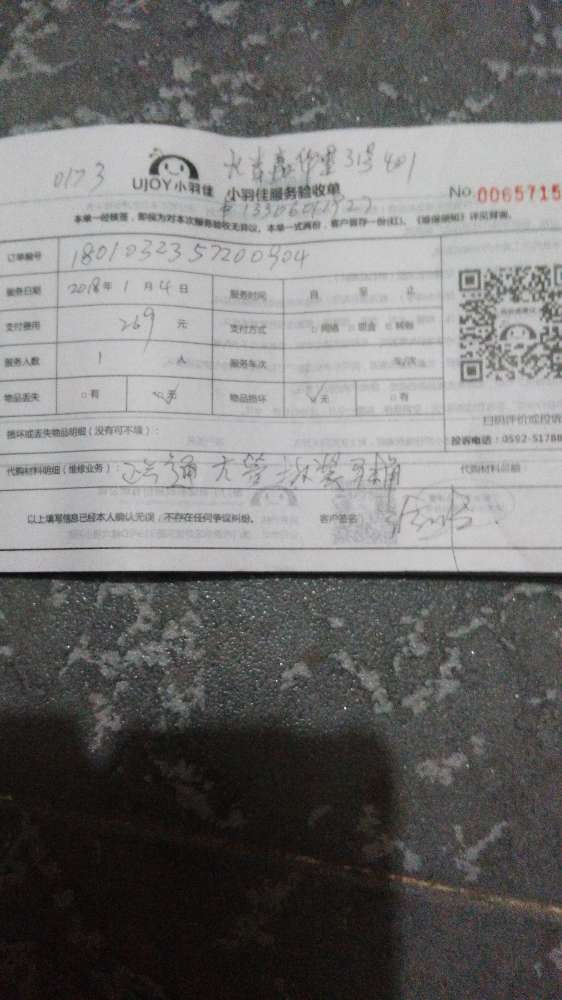 0173
UJOY小羽佳 小羽佳服务验收单 No.0065715
31号401
本单一经核签，即视为对本次服务验收无异议。本单一式两份，客户留存一份(红)。《维保须知》详见背面。
订单编号 1801032357200904
服务日期 2018年1月4日 服务时间 自 至 止
支付费用 269元 支付方式 □网络 □现金 □转账
服务人数 1人 服务车次 车/次
物品丢失 □有 无 物品损坏 无 □有
损坏或丢失物品明细（没有可不填）：
扫码评价或投诉
投诉电话：0592-51788
代购材料明细（维修业务）： 代购材料总额
以上填写信息已经本人确认无误，不存在任何争议纠纷。 客户签名